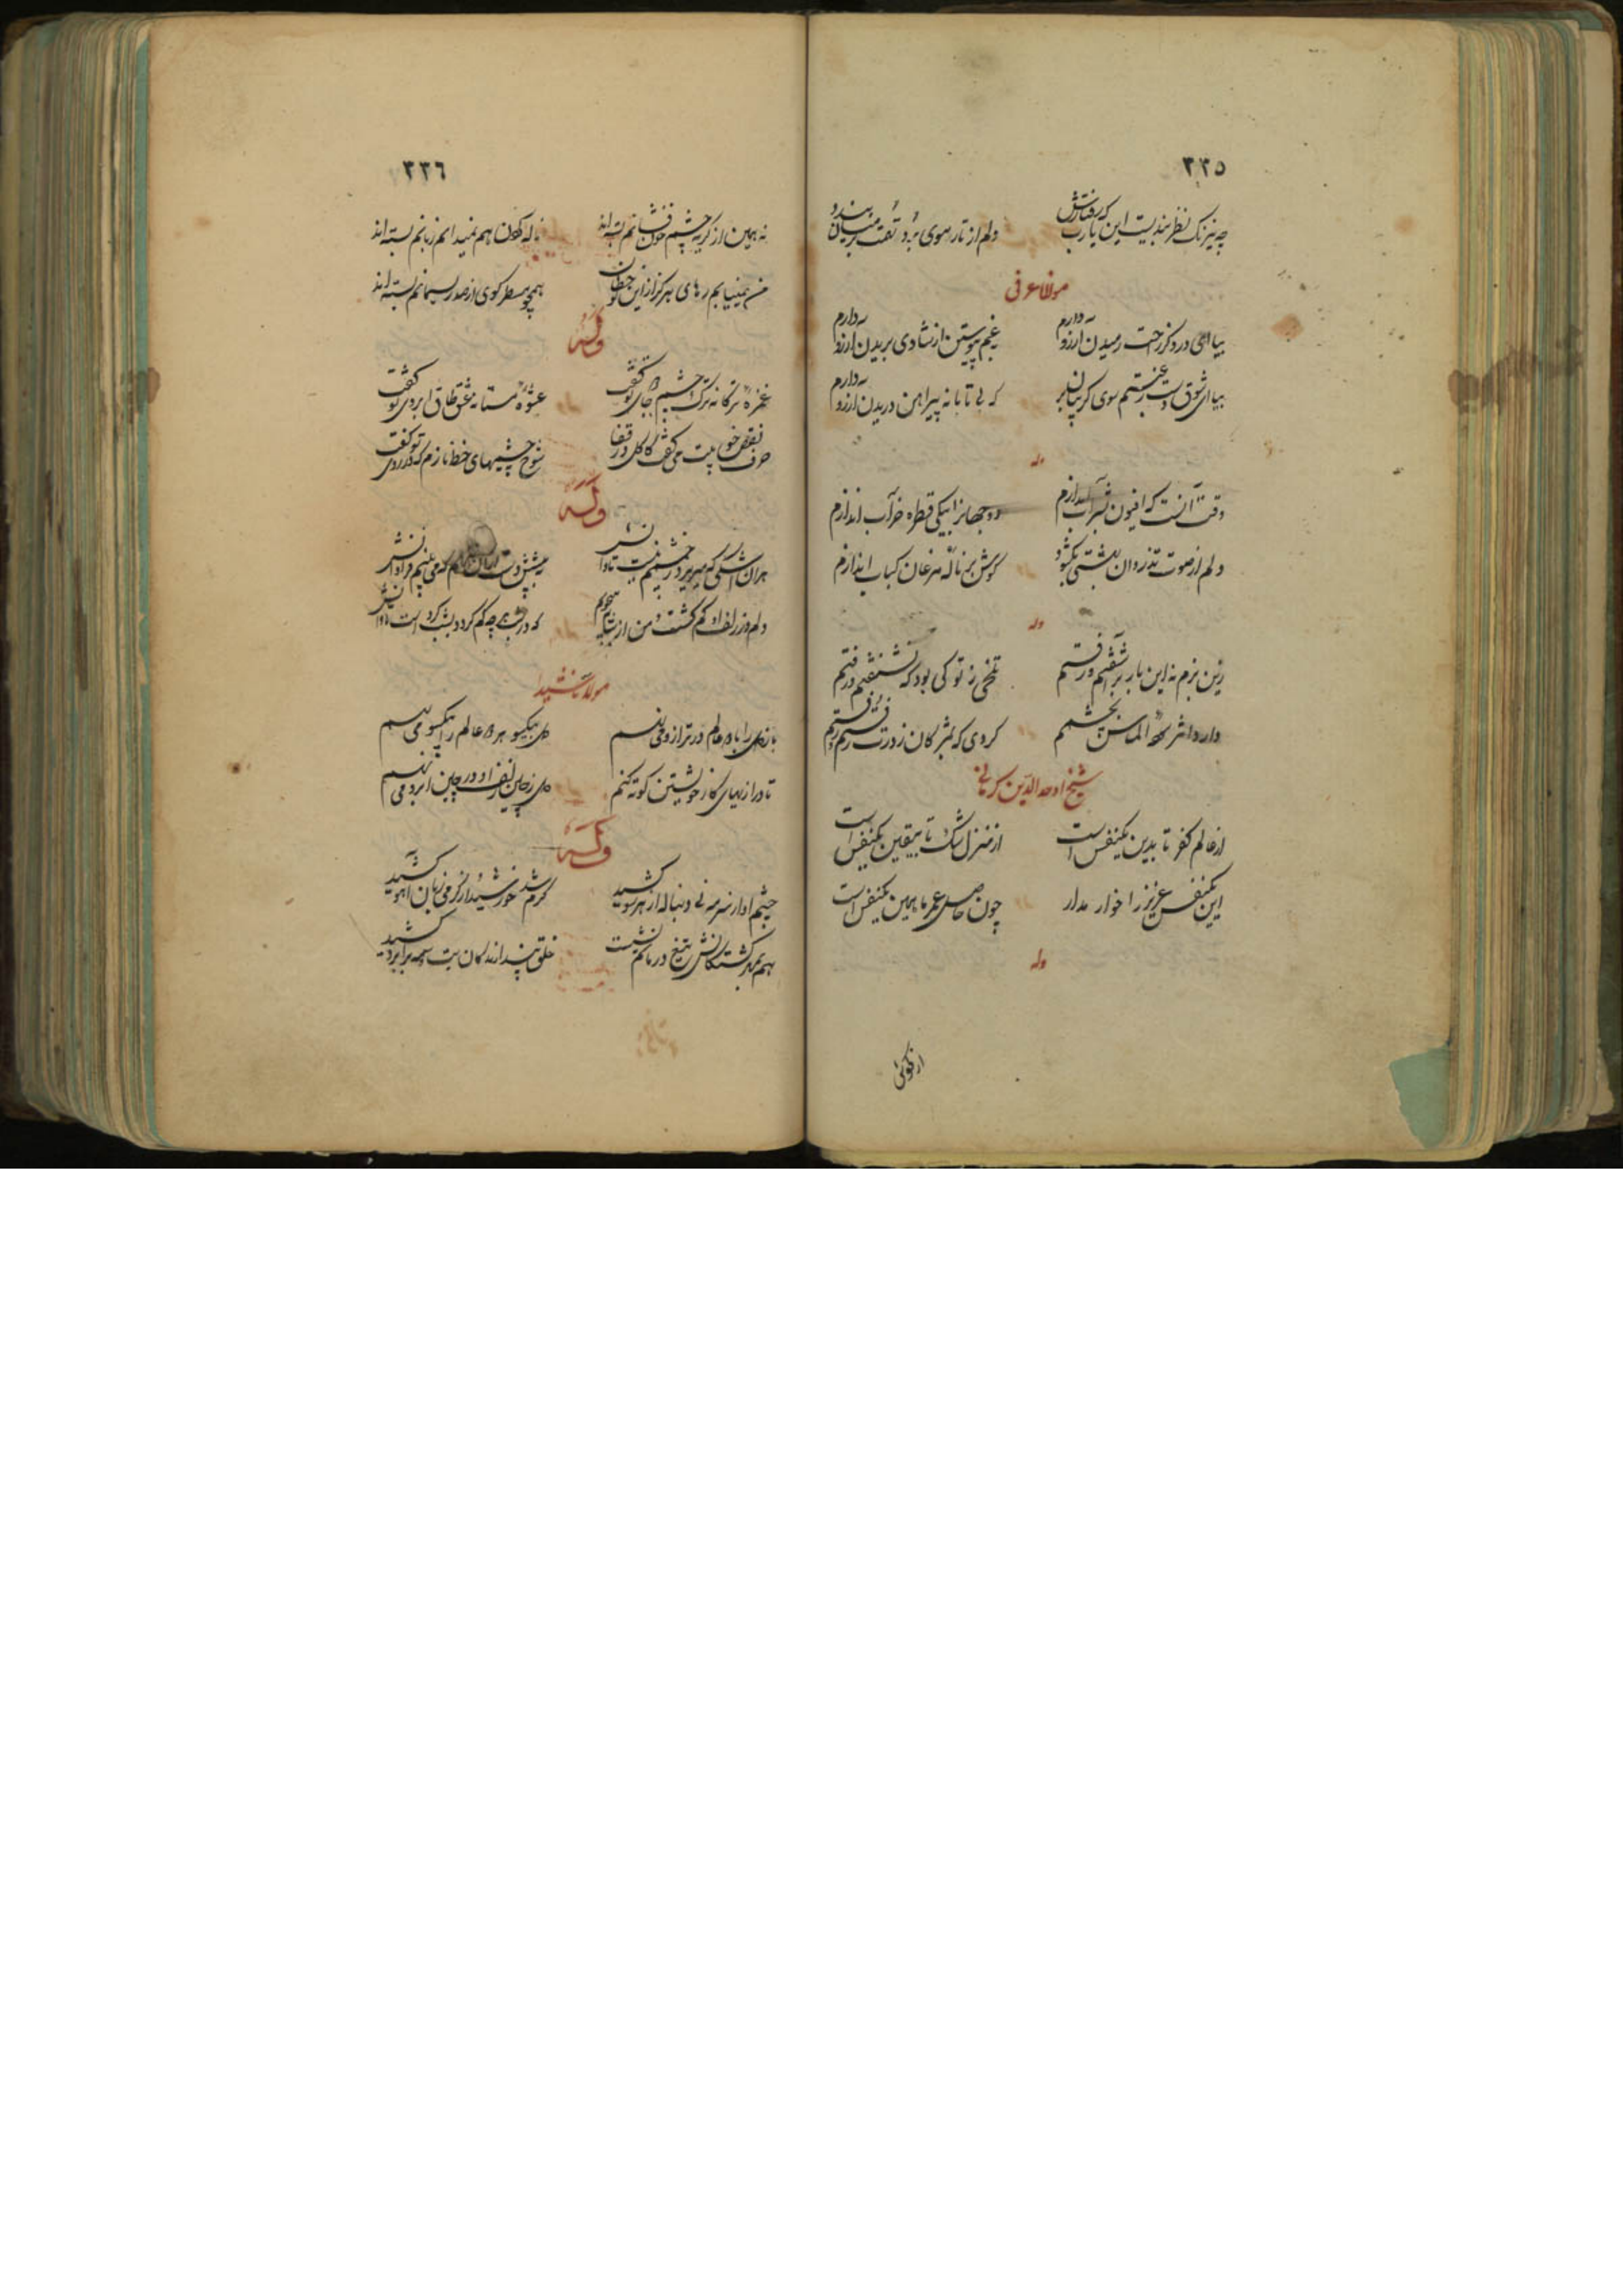 ٣٣٥
چه نیرنک نظر بندیست این یارب که رفتارش دلم از تار موی برد و تهمت بر میان بندد
مولانا عرفی
بیا ای درد کز راحت رمیدن آرزو دارم بغم پیوستن از شادی بریدن آرزو دارم
بیا ای شوق و دست رستم سوی کریبان بر که بی تابانه پیراهن دریدن آرزو دارم
وله
وقت آنست که افیون بشراب اندازم دو جهانرا بیکی قطره خراب اندازم
دلم از صوت تذروان بهشتی نکشود کوش بر نالهٔ مرغان کباب اندازم
وله
زین بزم نه این بار برآشفتیم و رفتیم تلخی ز تو کی بود که نشنفتیم و رفتیم
دارد اثر الماس کردی که بمژکان ز درت رفتیم و رفتیم
شیخ اوحد الدین کرمانی
از عالم کفر تا بدین یکنفس است از منزل شک تا بیقین یکنفس است
این یکنفس عزیز را خوار مدار چون حاصل عمر ما همین یکنفس است
وله
از نکوئی
٣٣٦
نه همین از کریه چشم خون فشانم بسته اند ناله کردن هم نمیدانم زبانم بسته اند
من نمییابم رهای هرکز از این همچو مسطر کوی از صد ریسمانم بسته اند
وله
غمزهٔ ترکانه ترک چشم جای تو کفت عشوهٔ مستانه عشق طاق ابروی تو کفت
حرف می کفت کاکل در قفا شوخ چشمیهای خط نازم که در روی تو کفت
وله
هران اشکی که میریزد ز چشمم نیست تاوانش
دلم در زلف او کم کشت و من از شانه میجویم که در شب هر چه کم کردد بشب کرد است تاوانش
مولانا شیدا
باز دل را با دو عالم در ترازو می نهم دل بیکسو هر دو عالم را بیکسو می نهم
تا درازیهای کار خویشتن کوته کنم دل ز چین زلف او در چین ابرو می نهم
وله
چشم او از سرمه نی دنباله از هر سو کشید کرم شد خورشید از کرمی زبان آهو کشید
بهر کشتکانش تیغ در ماتم نشست خلق پندارند کان بت وسمه بر ابرو کشید